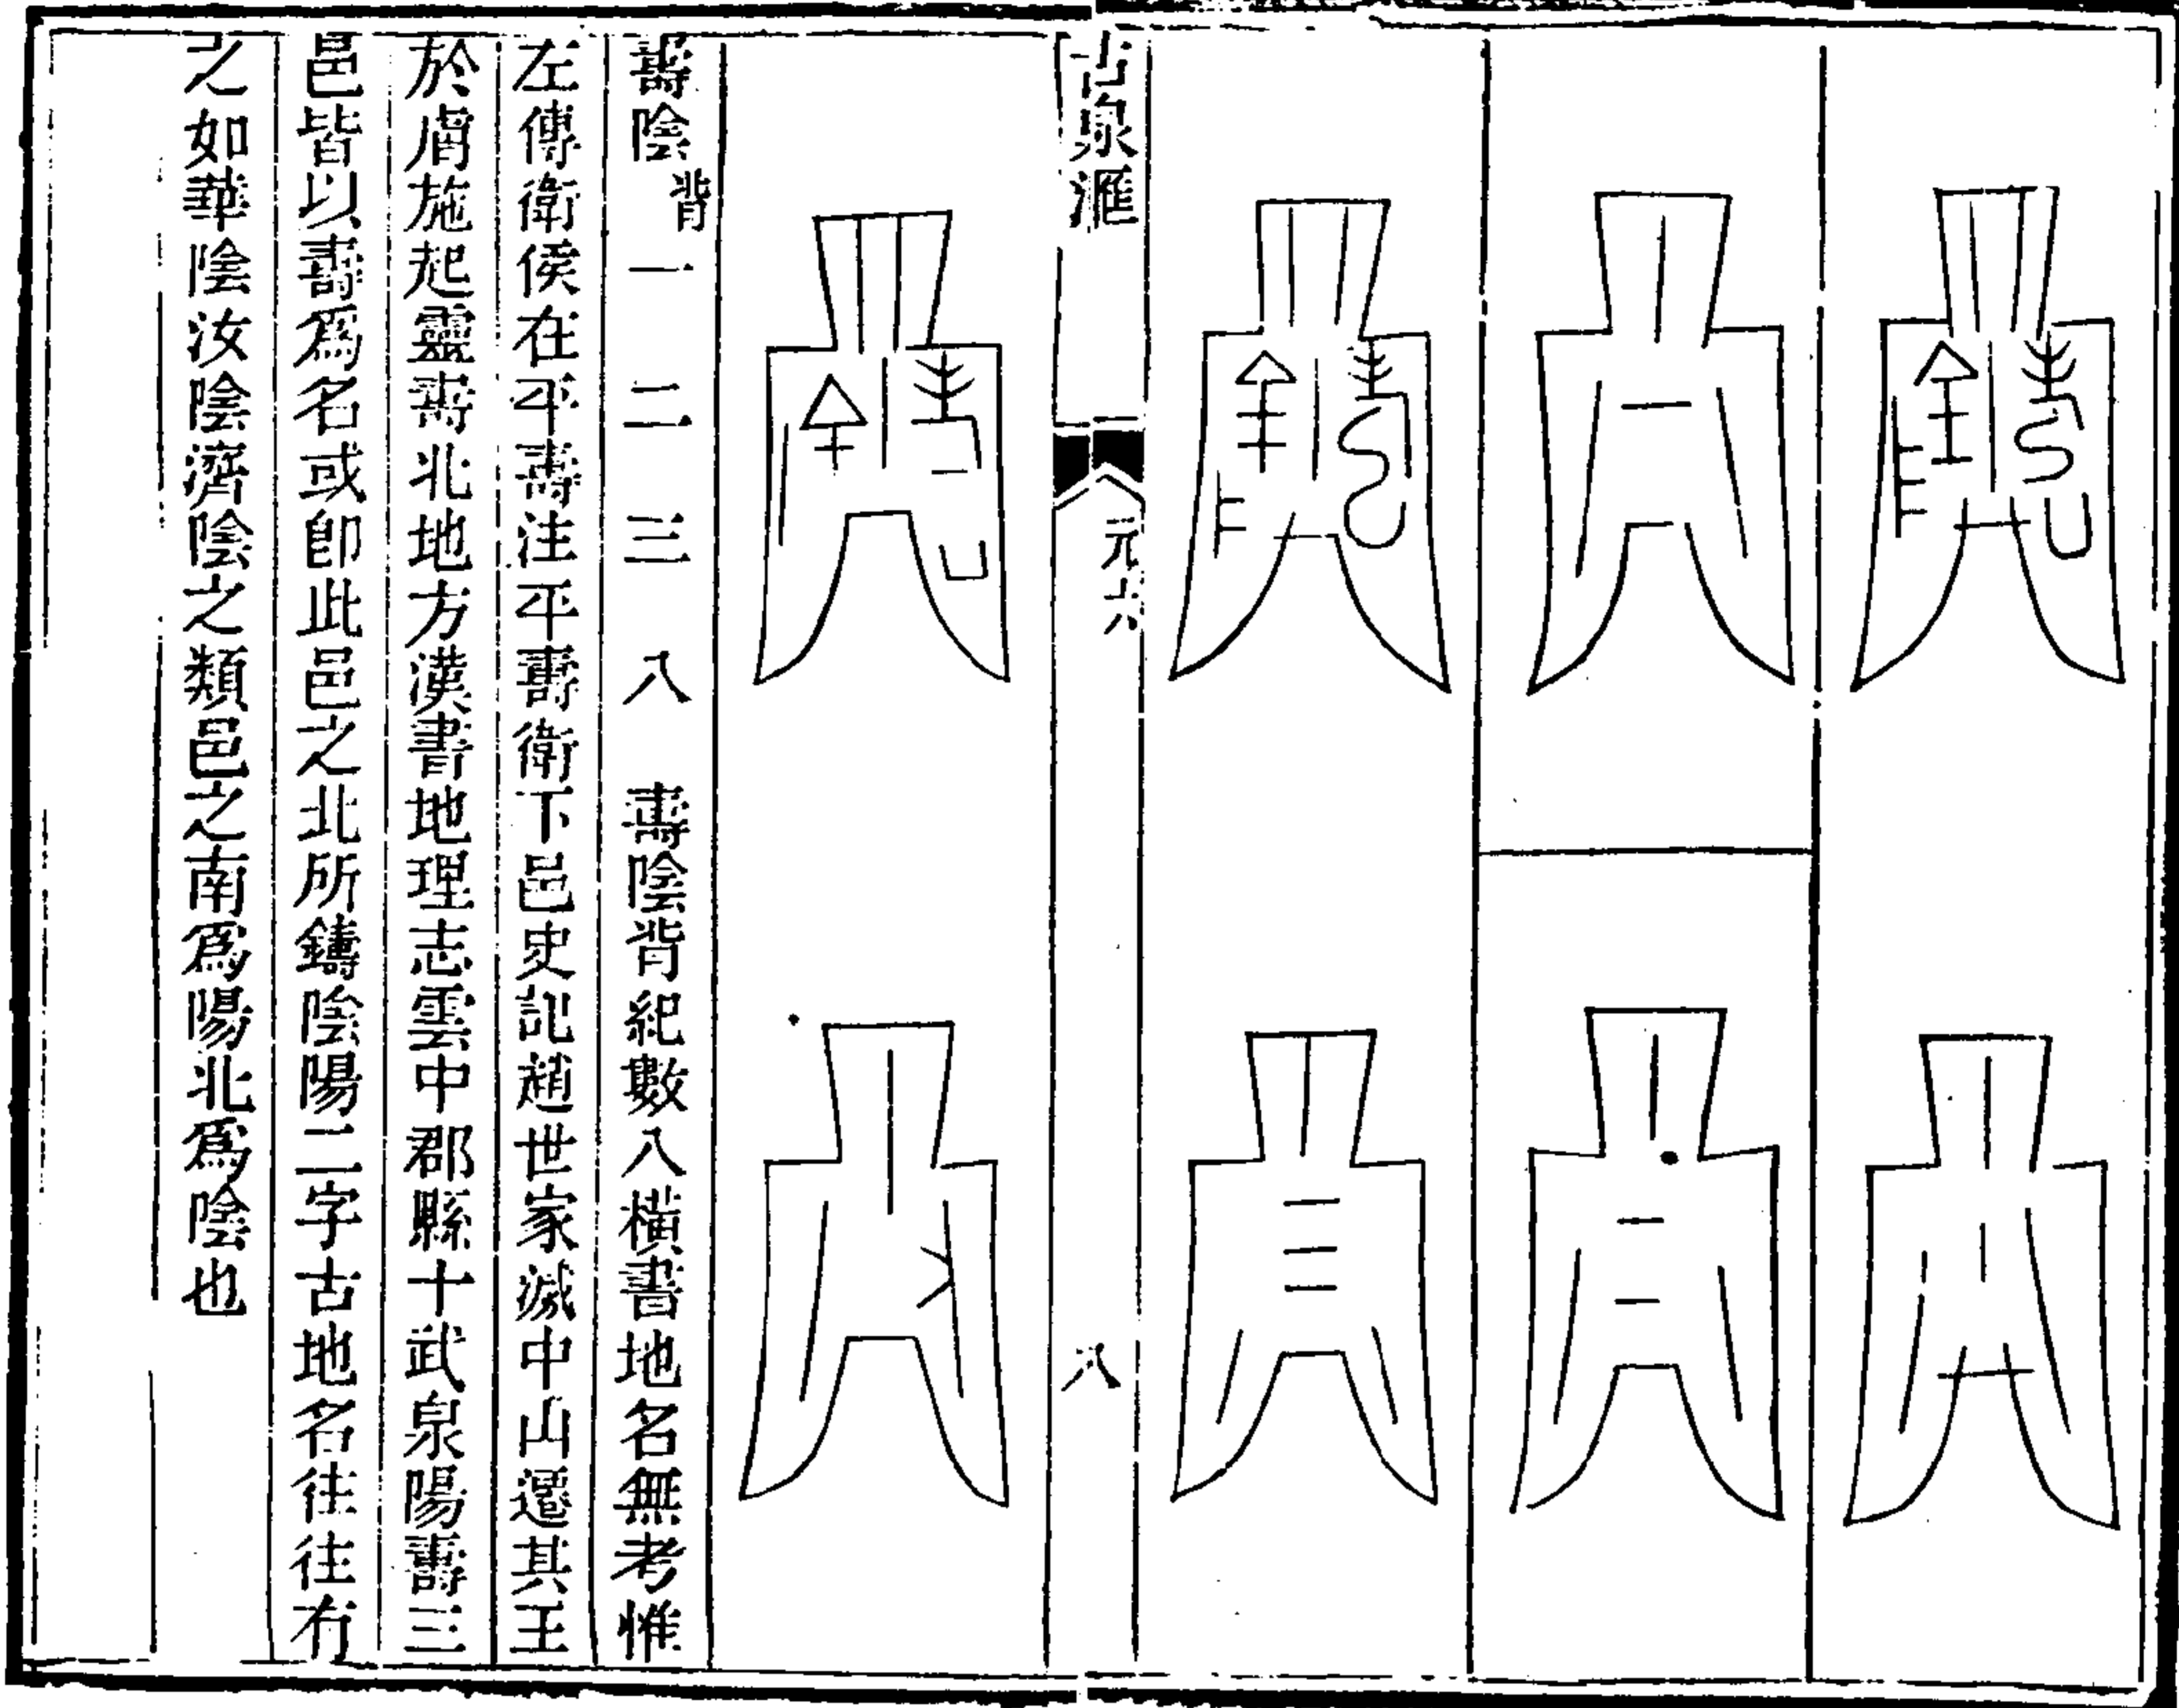 古泉滙
元六
八
壽陰背一 二 三 八 壽陰背紀數八橫書地名無考惟
左傳衛侯在平壽注平壽衛下邑史記趙世家滅中山遷其王
於膚施起靈壽北地方漢書地理志雲中郡縣十武泉陽壽三
邑皆以壽爲名或卽此邑之北所鑄陰陽二字古地名往往有
之如華陰汝陰濟陰之類邑之南爲陽北爲陰也